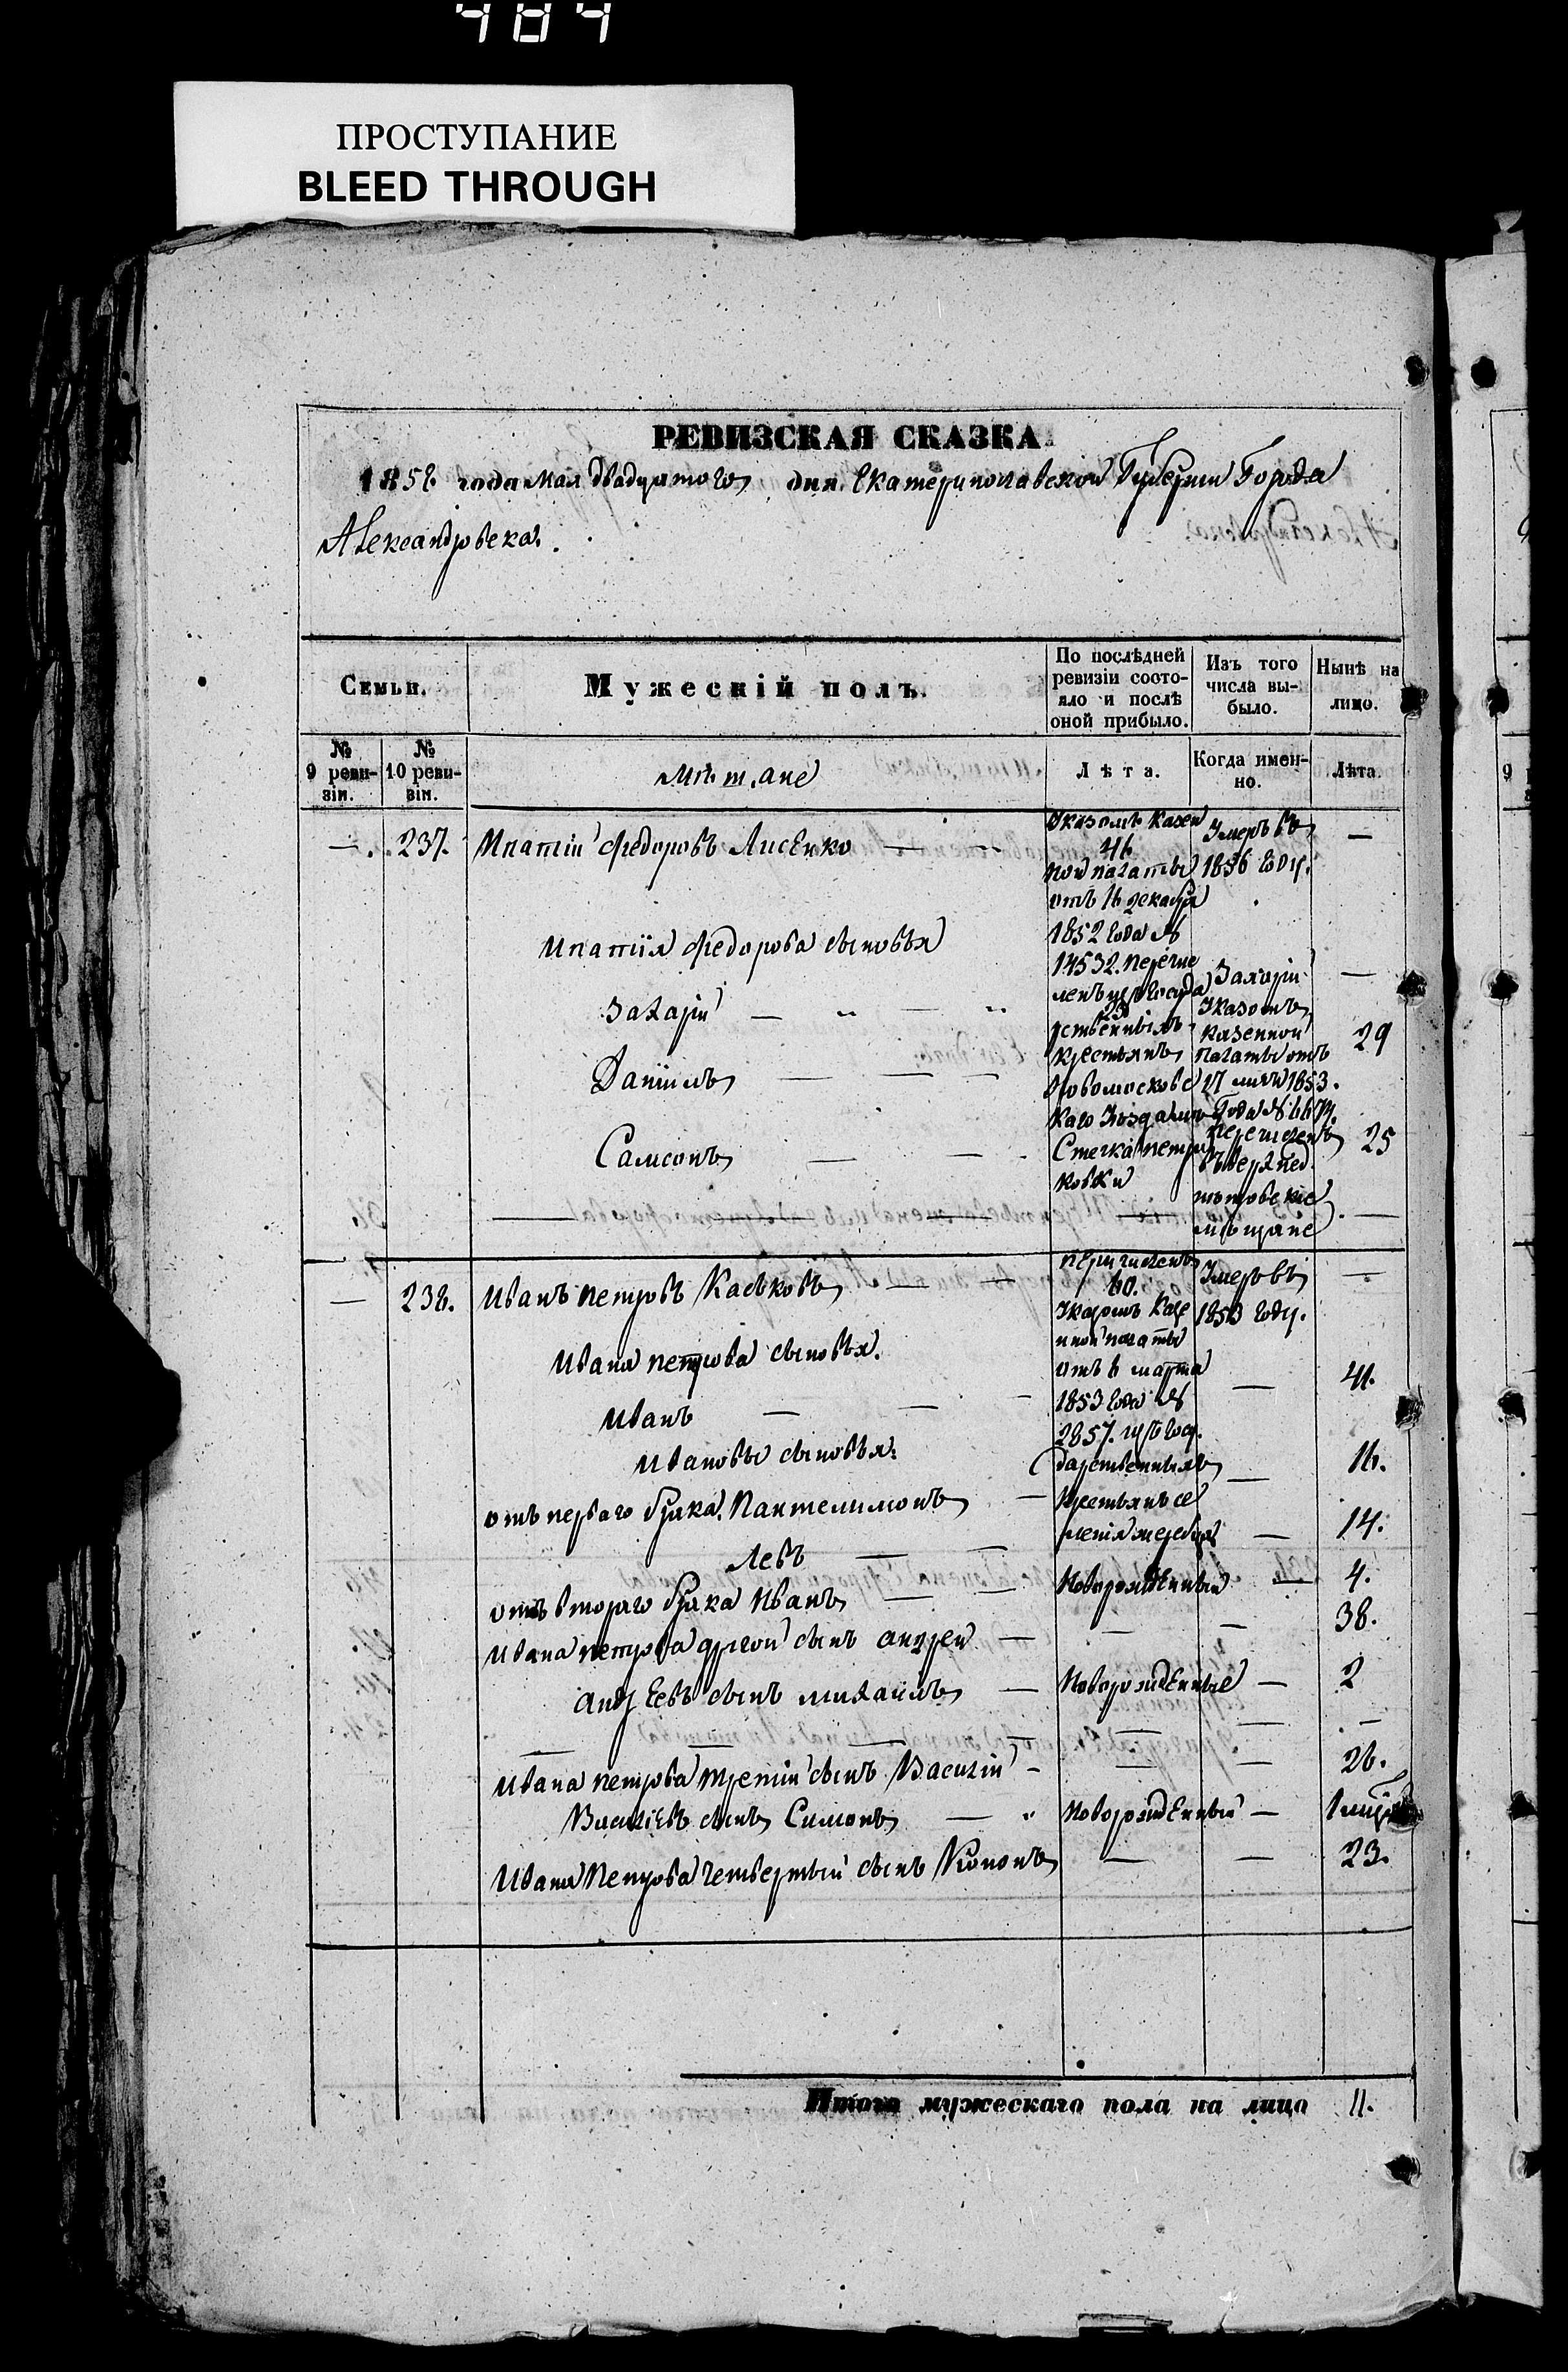 484
ПРОСТУПАНИЕ
BLEED THROUGH
РЕВИЗСКАЯ СКАЗКА
1858 года мая двадцатого дня. Екатеринославской Губернии Города
Александровска.
Семьи.
Мужескій полъ.
По послѣдней ревизіи состояло и послѣ оной прибыло.
Изъ того числа выбыло.
Нынѣ на лицо.
№ 9 ревизіи.
№ 10 ревизіи.
мѣщане
Лѣта.
Когда именно.
Лѣта.
— 237. Ипатій Федоровъ Лисенко — —
Ипатія Федорова сыновья
Захарій —
Даніилъ — — — 29
Самсонъ — — 25
Указомъ Казен
46
ной палаты
отъ 16 декабря
1852 года №
14532. перечис
ленъ изъ госуда
23
рственныхъ
крестьянъ
Новомосковс
каго уезда
ковки
Умеръ въ
1856 году.
Захарій
Указомъ
казенной
палаты отъ
17 1853.
года №
перечисленъ
въ верхнед
нѣпровскіе
мѣщане
— 238. Иванъ Петровъ Каськовъ — — —
Ивана Петрова сыновья.
Иванъ — — — 41.
Ивановы сыновья:
отъ перваго брака. Пантелимонъ — — 16.
Левъ — — — 14.
отъ втораго брака Иванъ — — новорожденный — 4.
Ивана Петрова другой сынъ Андрей — — — 38.
Андреевъ сынъ Михаилъ — новорожденные — 2
Ивана Петрова третій сынъ Василій — — — 26.
Васильевъ сынъ Симонъ — новорожденный —
Ивана Петрова четвертый сынъ Кононъ — — 23.
перечисленъ
60.
Указомъ Казе
нной палаты
отъ 6 марта
1853 года №
2857. изъ госу
дарственныхъ
крестьянъ се
ленія жеребца
Умеръ въ
1853 году.
Итого мужескаго пола на лицо 11.
9